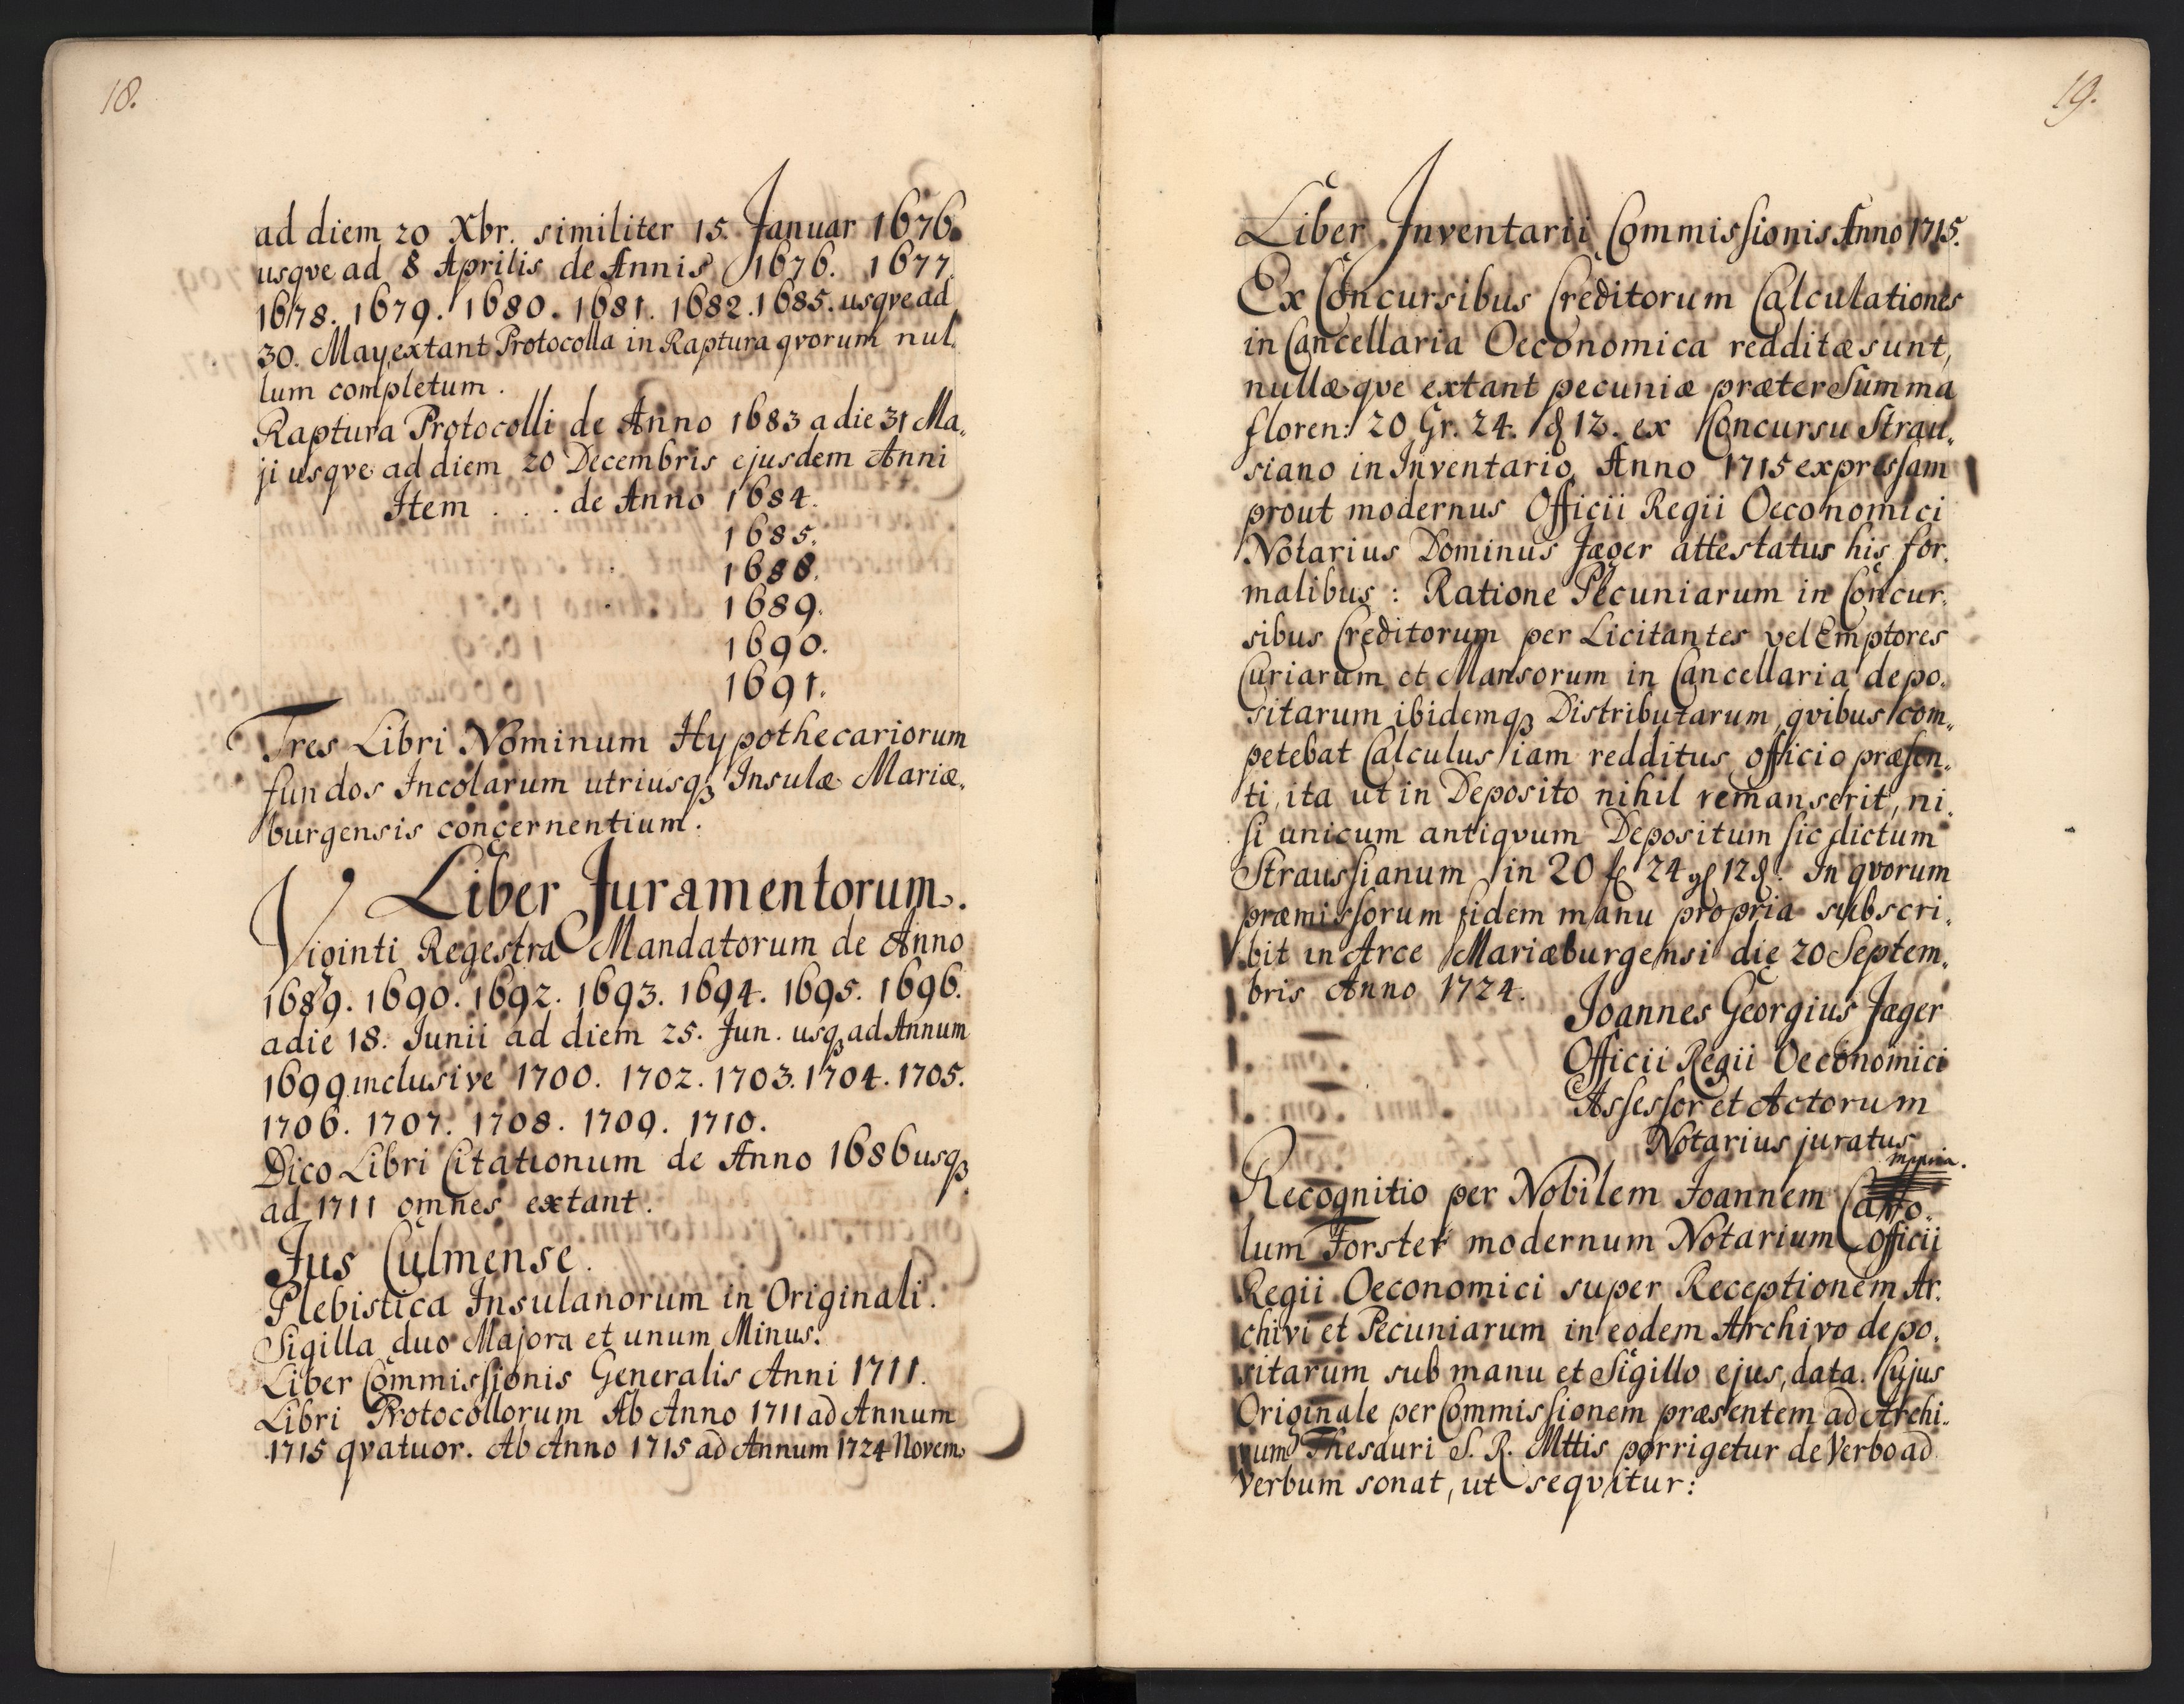 18.
ad diem 20 Xbr. similiter 15. Januar 1676.
usqve ad 8 Aprilis de Annis 1676. 1677.
1678. 1679. 1680. 1681. 1682. 1685. usqve ad
30. May extant Protocolla in Raptura qvorum nul„
lum completum.
Raptura Protocolli de Anno 1683 a die 31 Ma„
ji usqve ad diem 20 Decembris ejusdem Anni
Item . . . de Anno 1684.
1685.
1688.
1689.
1690.
1691.
Tres Libri Nominum Hypothecariorum
fundos Incolarum utriusqꝫ Insulæ Mariæ„
burgensis concernentium.
Liber Juramentorum.
Viginti Regestra Mandatorum de Anno
1689. 1690. 1692. 1693. 1694. 1695. 1696.
a die 18. Junii ad diem 25. Jun. usqꝫ ad Annum
1699 inclusive 1700. 1702. 1703. 1704. 1705.
1706. 1707. 1708. 1709. 1710.
Dico Libri Citationum de Anno 1686 usqꝫ
ad 1711 omnes extant.
Jus Culmense.
Plebistica Insulanorum in Originali.
Sigilla duo Majora et unum Minus.
Liber Commissionis Generalis Anni 1711.
Libri Protocollorum Ab Anno 1711 ad Annum
1715 qvatuor. Ab Anno 1715 ad Annum 1724 Novem.
19.
Liber Inventarii Commissionis Anno 1715.
Ex Concursibus Creditorum Calculationes
in Cancellaria Oeconomica redditæ sunt,
nullæqve extant pecuniæ præter Summa
floren: 20 Gr. 24. ₰ 12. ex Concursu Strau„
siano in Inventario Anno 1715 expressam
prout modernus Officii Regii Oeconomici
Notarius Dominus Jæger attestatur his for„
malibus: Ratione Pecuniarum in Concur„
sibus Creditorum per Licitantes vel Emptores
Curiarum et Mansorum in Cancellaria depo„
sitarum ibidemqꝫ Distributarum, qvibus com„
petebat Calculus iam redditus officio præsen„
ti, ita ut in Deposito nihil remanserit, ni„
si unicum antiqvum Depositum sic dictum
Straussianum in 20 fl 24 gl 12 ₰. In qvorum
præmissorum fidem manu propria subscri„
bit in Arce Mariæburgensi die 20 Septem„
bris Anno 1724.
Joannes Georgius Jæger
Officii Regii Oeconomici
Assessor et Actorum
Notarius juratus
mppria.
Recognitio per Nobilem Joannem Caro„
lum Forster modernum Notarium Officii
Regii Oeconomici super Receptionem Ar„
chivi et Pecuniarum in eodem Archivo depo„
sitarum sub manu et Sigillo ejus, data. Cujus
Originale per Commissionem præsentem ad Archi„
vum Thesauri S. R. Mttis porrigetur de Verbo ad
Verbum sonat, ut seqvitur: